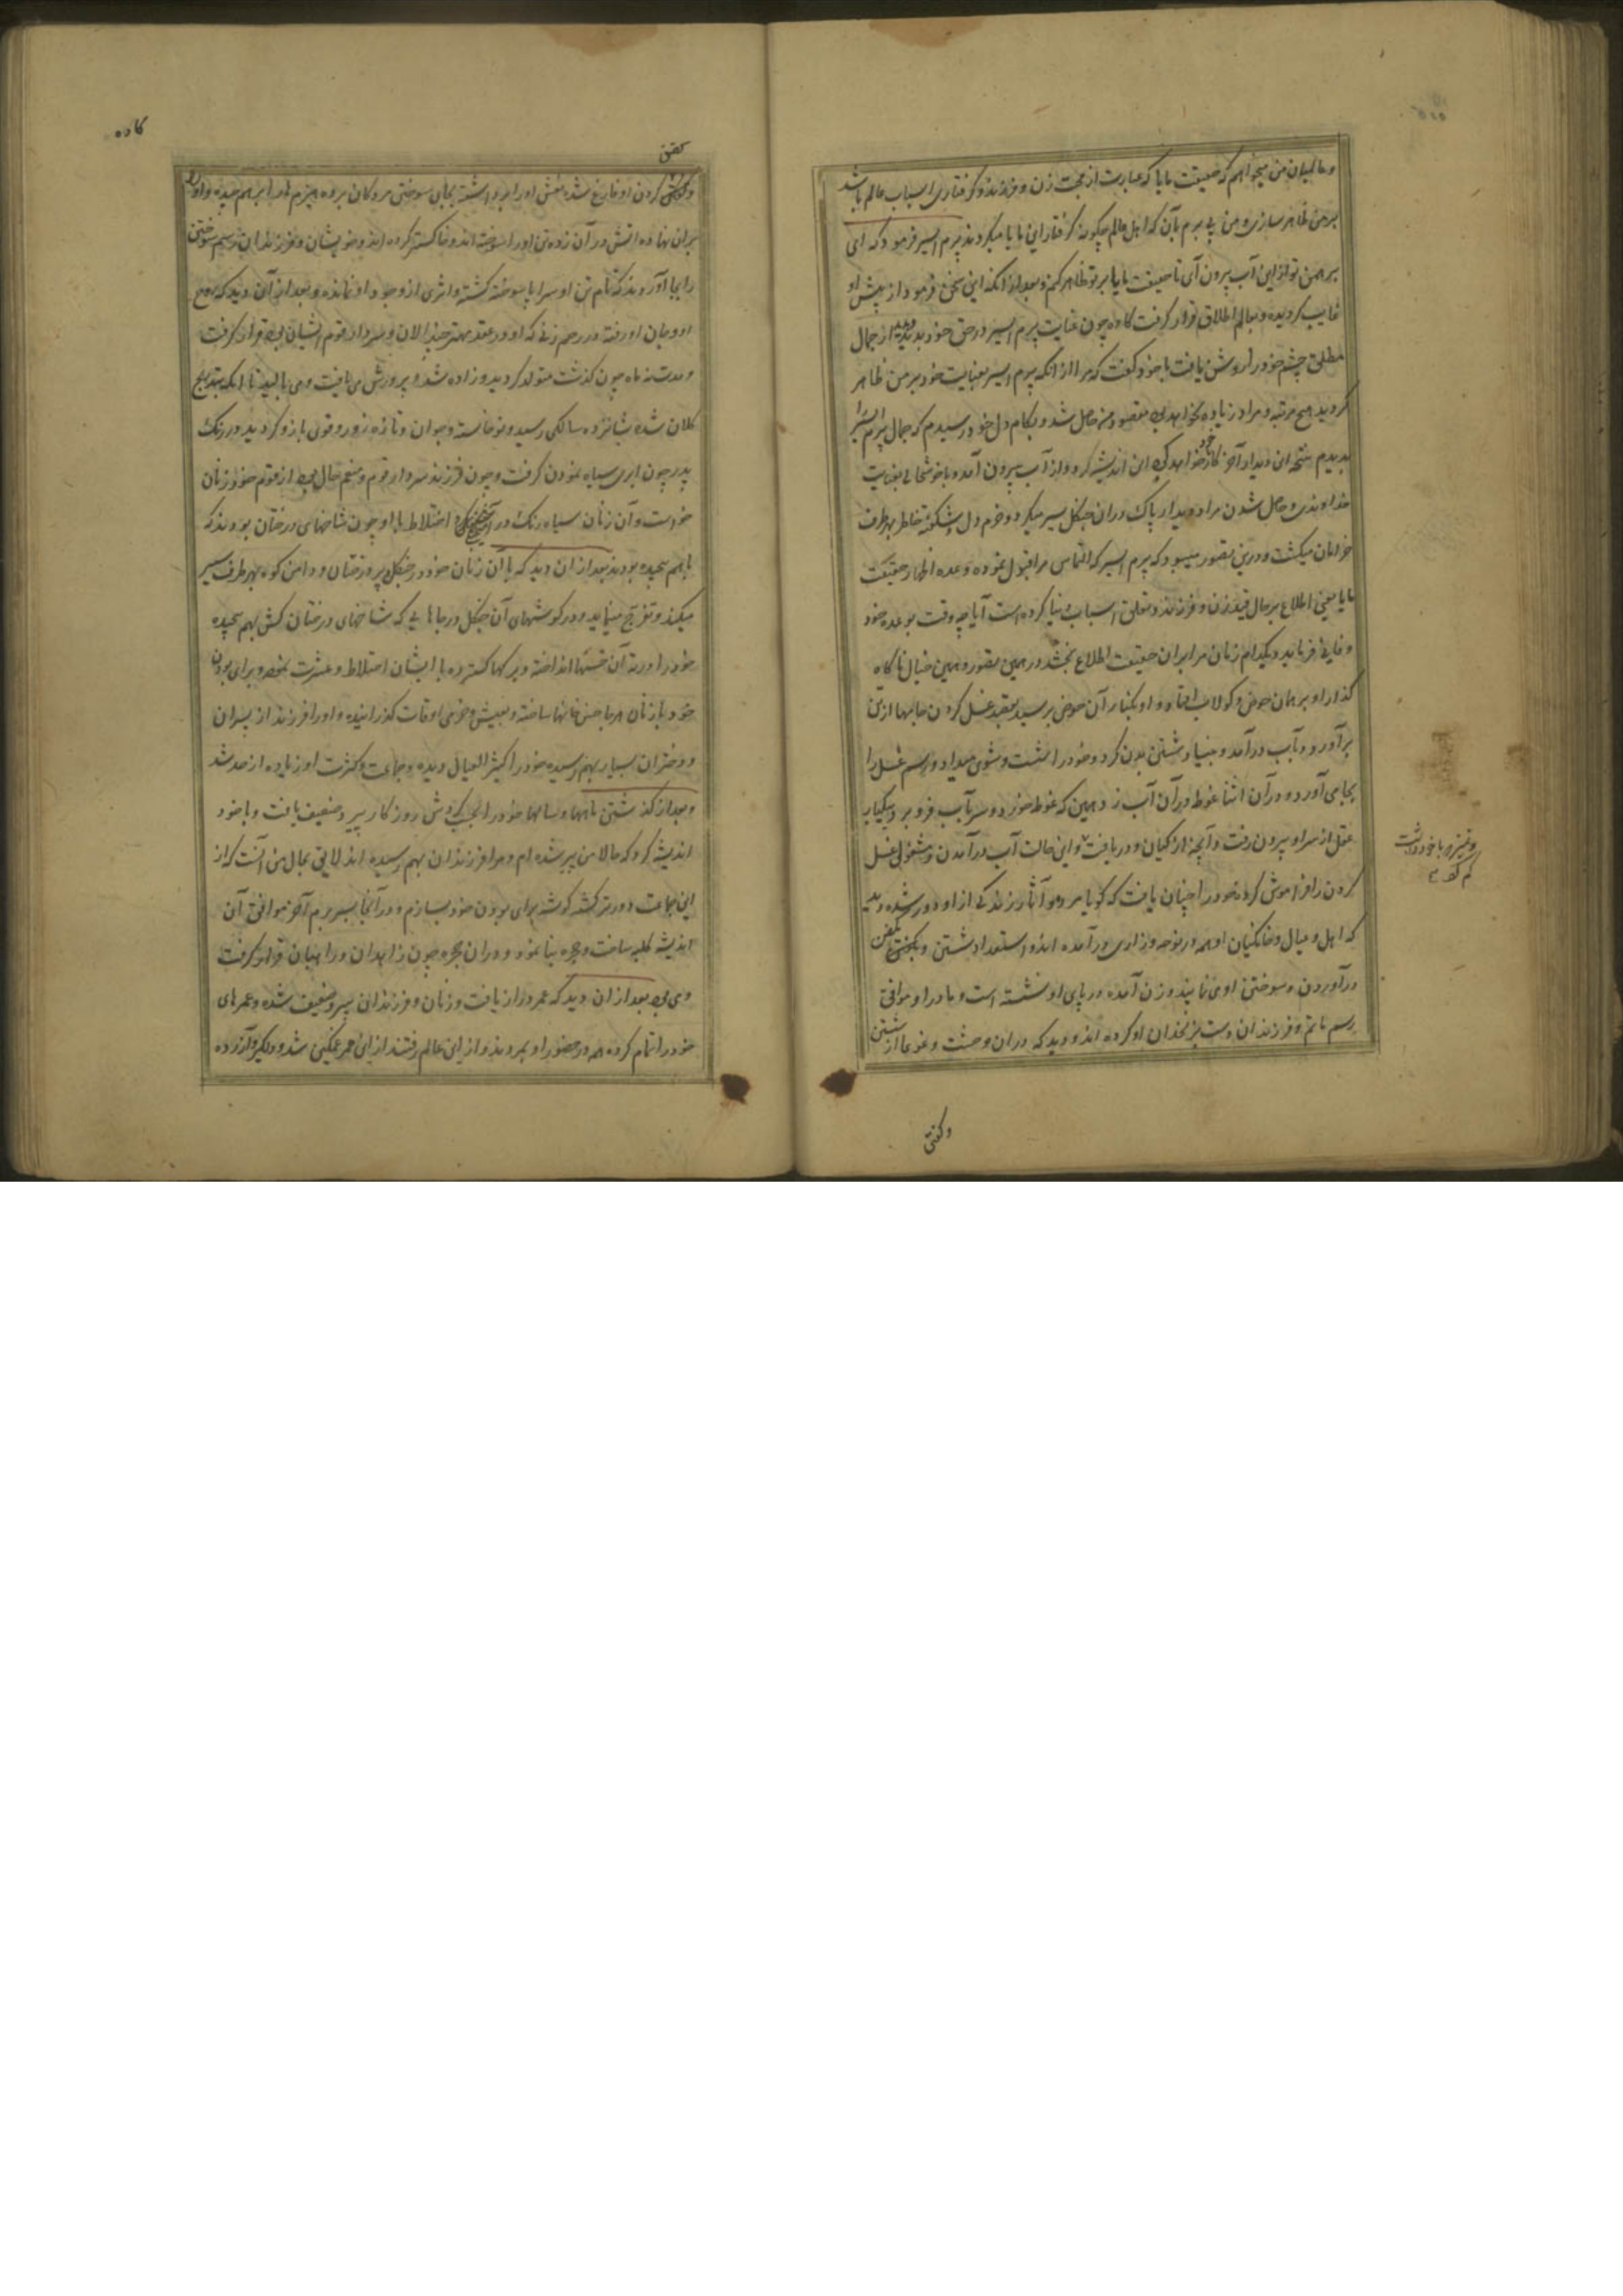 و عالمیان من میخواهم که حقیقت مایا که عبارت از محبت زن و فرزند و گرفتاری اسباب عالم باشد
برمن ظاهر سازی و من پی برم بآن که اهل عالم چگونه گرفتار این مایا میگردند پرم ایسر فرمود که ای
برهمن تو ازین آب بیرون آی تا حقیقت مایا بر تو ظاهر کنم و بعد از آنکه این سخن فرمود از پیش او
غایب گردیده و بعالم اطلاق قرار گرفت کاده چون عنایت پرم ایسر در حق خود بدید و از جمال
مطلق چشم خود را روشن یافت با خود گفت که مرا از آنکه پرم ایسر بعنایت خود بر من ظاهر
گردید هیچ مرتبه و مراد زیاده نخواهد بود مقصود من حاصل شد و بکام دل خود رسیدم که جمال پرم ایسر را
بدیدم نتیجه این دیدار آخر کار خواهد کرد این اندیشه کرد و از آب بیرون آمد و با خوشحالی بعنایت
خداوندی و حاصل شدن مراد و دیدار پاک در آن جنگل سیر میکرد و خرم دل و شکفته خاطر بهر طرف
خرامان میگشت و درین تصور میبود که پرم ایسر که التماس مرا قبول نموده وعده اظهار حقیقت
مایا یعنی اطلاع بر حال قید زن و فرزند و تعلق اسباب دنیا کرده است آیا چه وقت بوعده خود
وفا فرماید و بکدام زمان مرا بر آن حقیقت اطلاع بخشد در همین تصور و همین خیال ناگاه
گذار او بر همان حوض و کولاب افتاد و او بکنار آن حوض برسید بقصد غسل کردن جامها از تن
برآورد و بآب درآمد و بنیاد شستن بدن کرد و خود را شست و شوی میداد و رسم غسل را
بجا می آورد و در آن اثنا غوطه در آن آب زد همین که غوطه خورد و سر بآب فرو برد و بیکبار
عقل از سر او بیرون رفت و آنچه از گیان و دریافت و این حالت آب درآمدن و مشغولی غسل
کردن را فراموش کرد و خود را چنان یافت که گویا مرد و آثار زندگی از او دور شده دید
که اهل و عیال و خانگیان او همه در نوحه و زاری درآمده اند و استعداد شستن و بکفن
درآوردن و سوختن او می نمایند و زن آمده در پای او نشسته است و مادر او موافق
رسم ماتم و فرزندان دست بزنخدان او کرده اند و دید که در آن وحشت و غوغا از شستن
و کفن
کاده
کفن
کردن او فارغ شده نعش او را برداشته بجای سوختن مردگان برده هیزم ها را بر هم چیده و او را
بر آن نهاده آتش در آن زده تن او را سوخته اند و خاکستر کرده اند و خویشان و فرزندانش رسم سوختن
را بجا آوردند که تمام تن او سراپا سوخته گشته و اثری از وجود او نمانده و بعد از آن دید که روح
او و جان او رفته در رحم زنی که او در عقد مهتر چندالان و سردار قوم ایشان بود قرار گرفت
و مدت نه ماه چون گذشت متولد گردید و زاده شد و پرورش می یافت و می بالید تا آنکه بتدریج
کلان شده شانزده سالگی رسید و نوخاسته و جوان و تازه زور و قوی بازو گردید در رنگ
پدر چون ابری سیاه نمودن گرفت و چون فرزند سردار قوم و منعم حال بود از قوم خود زنان
خواست و آن زنان سیاه رنگ در اختلاط با او چون شاخهای درختان بودند که
باهم پیچیده بودند بعد از آن دید که با آن زنان خود در جنگل پر درختان و دامن کوه بهر طرف سیر
میکند و تفرج مینماید و در گوشهای آن جنگل در جاهایی که شاخهای درختان کش بهم پیچیده
خود را در ته آن انداخته و برگها گسترده با ایشان اختلاط و عشرت نموده و برای بودن
خود با زنان هر جا جنس خانها ساخته و بعیش و خرمی اوقات گذرانیده و او را فرزند از پسران
و دختران بسیار بهم رسیده خود را کثیر العیال دیده و جماعت و کثرت او زیاده از حد شد
و بعد از گذشتن ماهها و سالها خود را بحسب گردش روزگار پیر و ضعیف یافت و با خود
اندیشه کرد که حالا من پیر شده ام و مرا فرزندان بهم رسیده اند لایق بحال من آنست که از
این جماعت دورتر گشته گوشه برای بودن خود بسازم و در آنجا بسر برم آخر موافق آن
اندیشه کلبه ساخت و حجره بنا نمود و در آن حجره چون زاهدان و راهبان قرار گرفت
و می بود بعد از آن دید که عمر دراز یافت و زنان و فرزندان پیر و ضعیف شده و عمرهای
خود را تمام کرده همه در حضور او بمردند و از این عالم رفتند از این ممر غمگین شد و دلگیر و آزرده